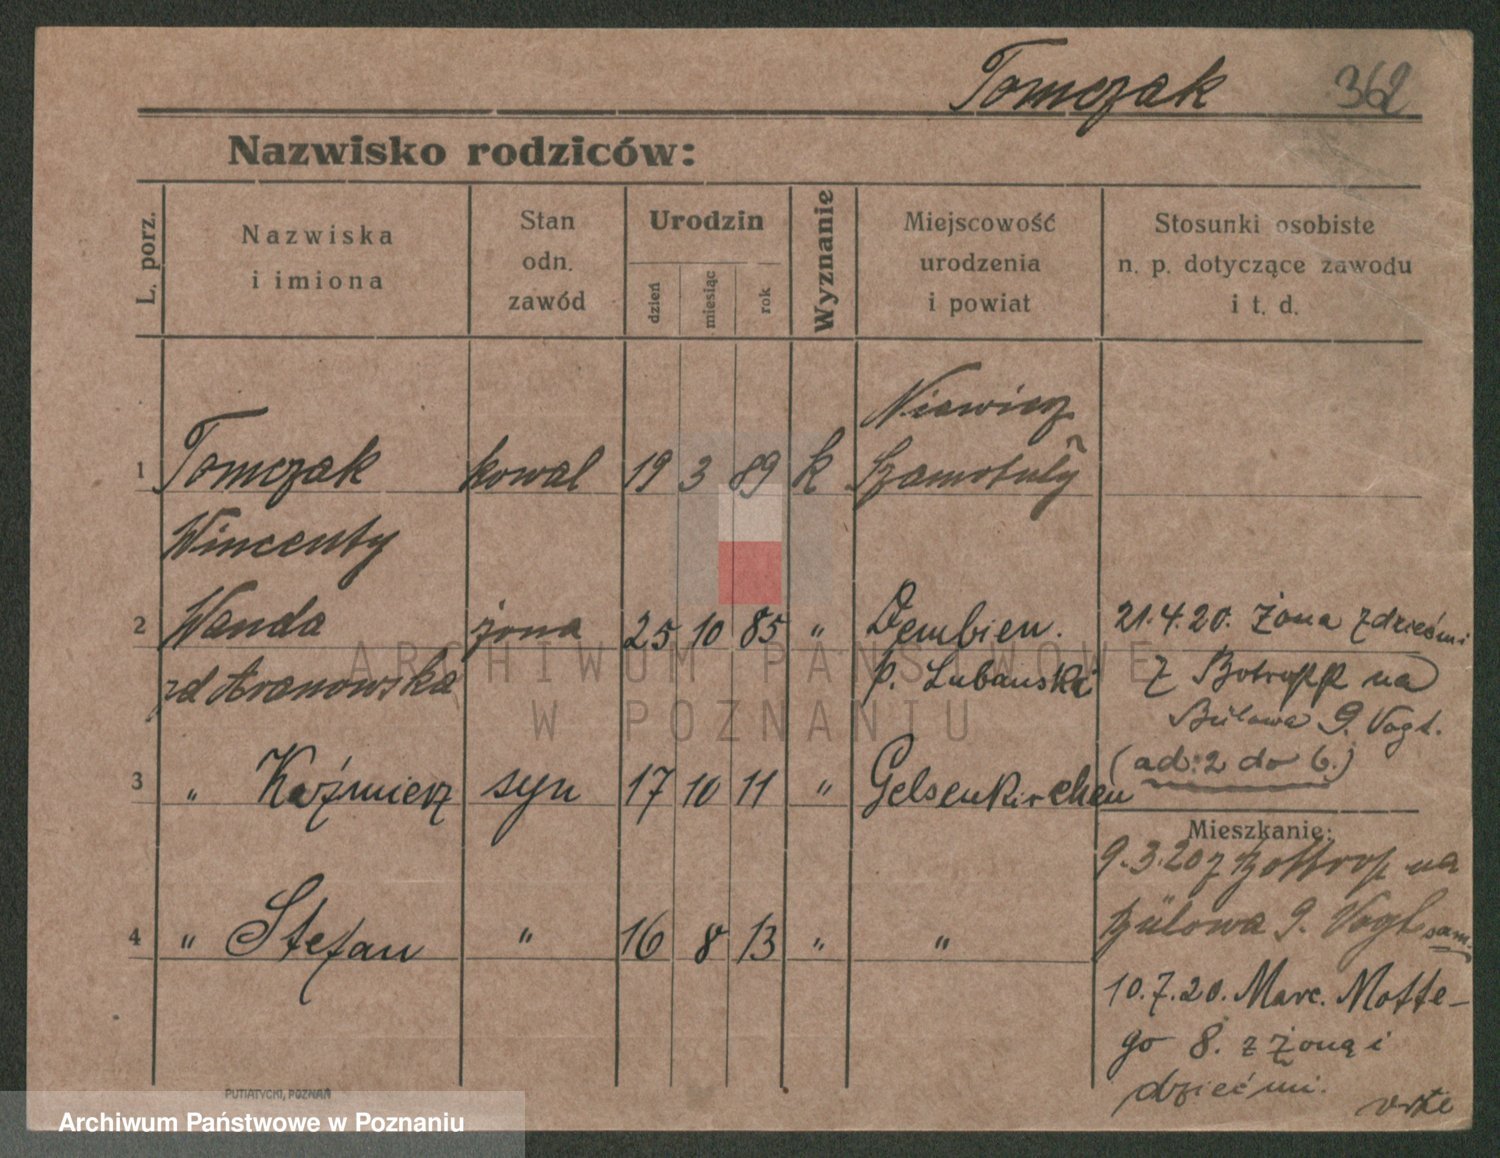 Tomczak 362
Nazwisko rodziców:
L. porz.
Nazwiska
i imiona
Stan
odn.
zawód
Urodzin
dzień
miesiąc
rok
Wyznanie
Miejscowość
urodzenia
i powiat
Stosunki osobiste
n. p. dotyczące zawodu
i t. d.
Niewierz
1 Tomczak kowal 19 3 89 k Szamotuły
Wincenty
2 Wanda żona 25 10 85 " Dembien.
zd Aranowska p. Lubauski
21.4.20. żona z dziećmi
z Botropp na
Bülowa 9. Vogt.
(ad: 2 do 6.)
3 " Kaźmierz syn 17 10 11 " Gelsenkirchen
Mieszkanie:
9.3.20 z Bottrop na
Bülowa 9. Vogt sam.
4 " Stefan " 16 8 13 " "
10.7.20. Marc. Motte-
go 8. z żoną i
dziećmi.
PUTIATYCKI, POZNAŃ
ARCHIWUM PAŃSTWOWE
W POZNANIU
Archiwum Państwowe w Poznaniu